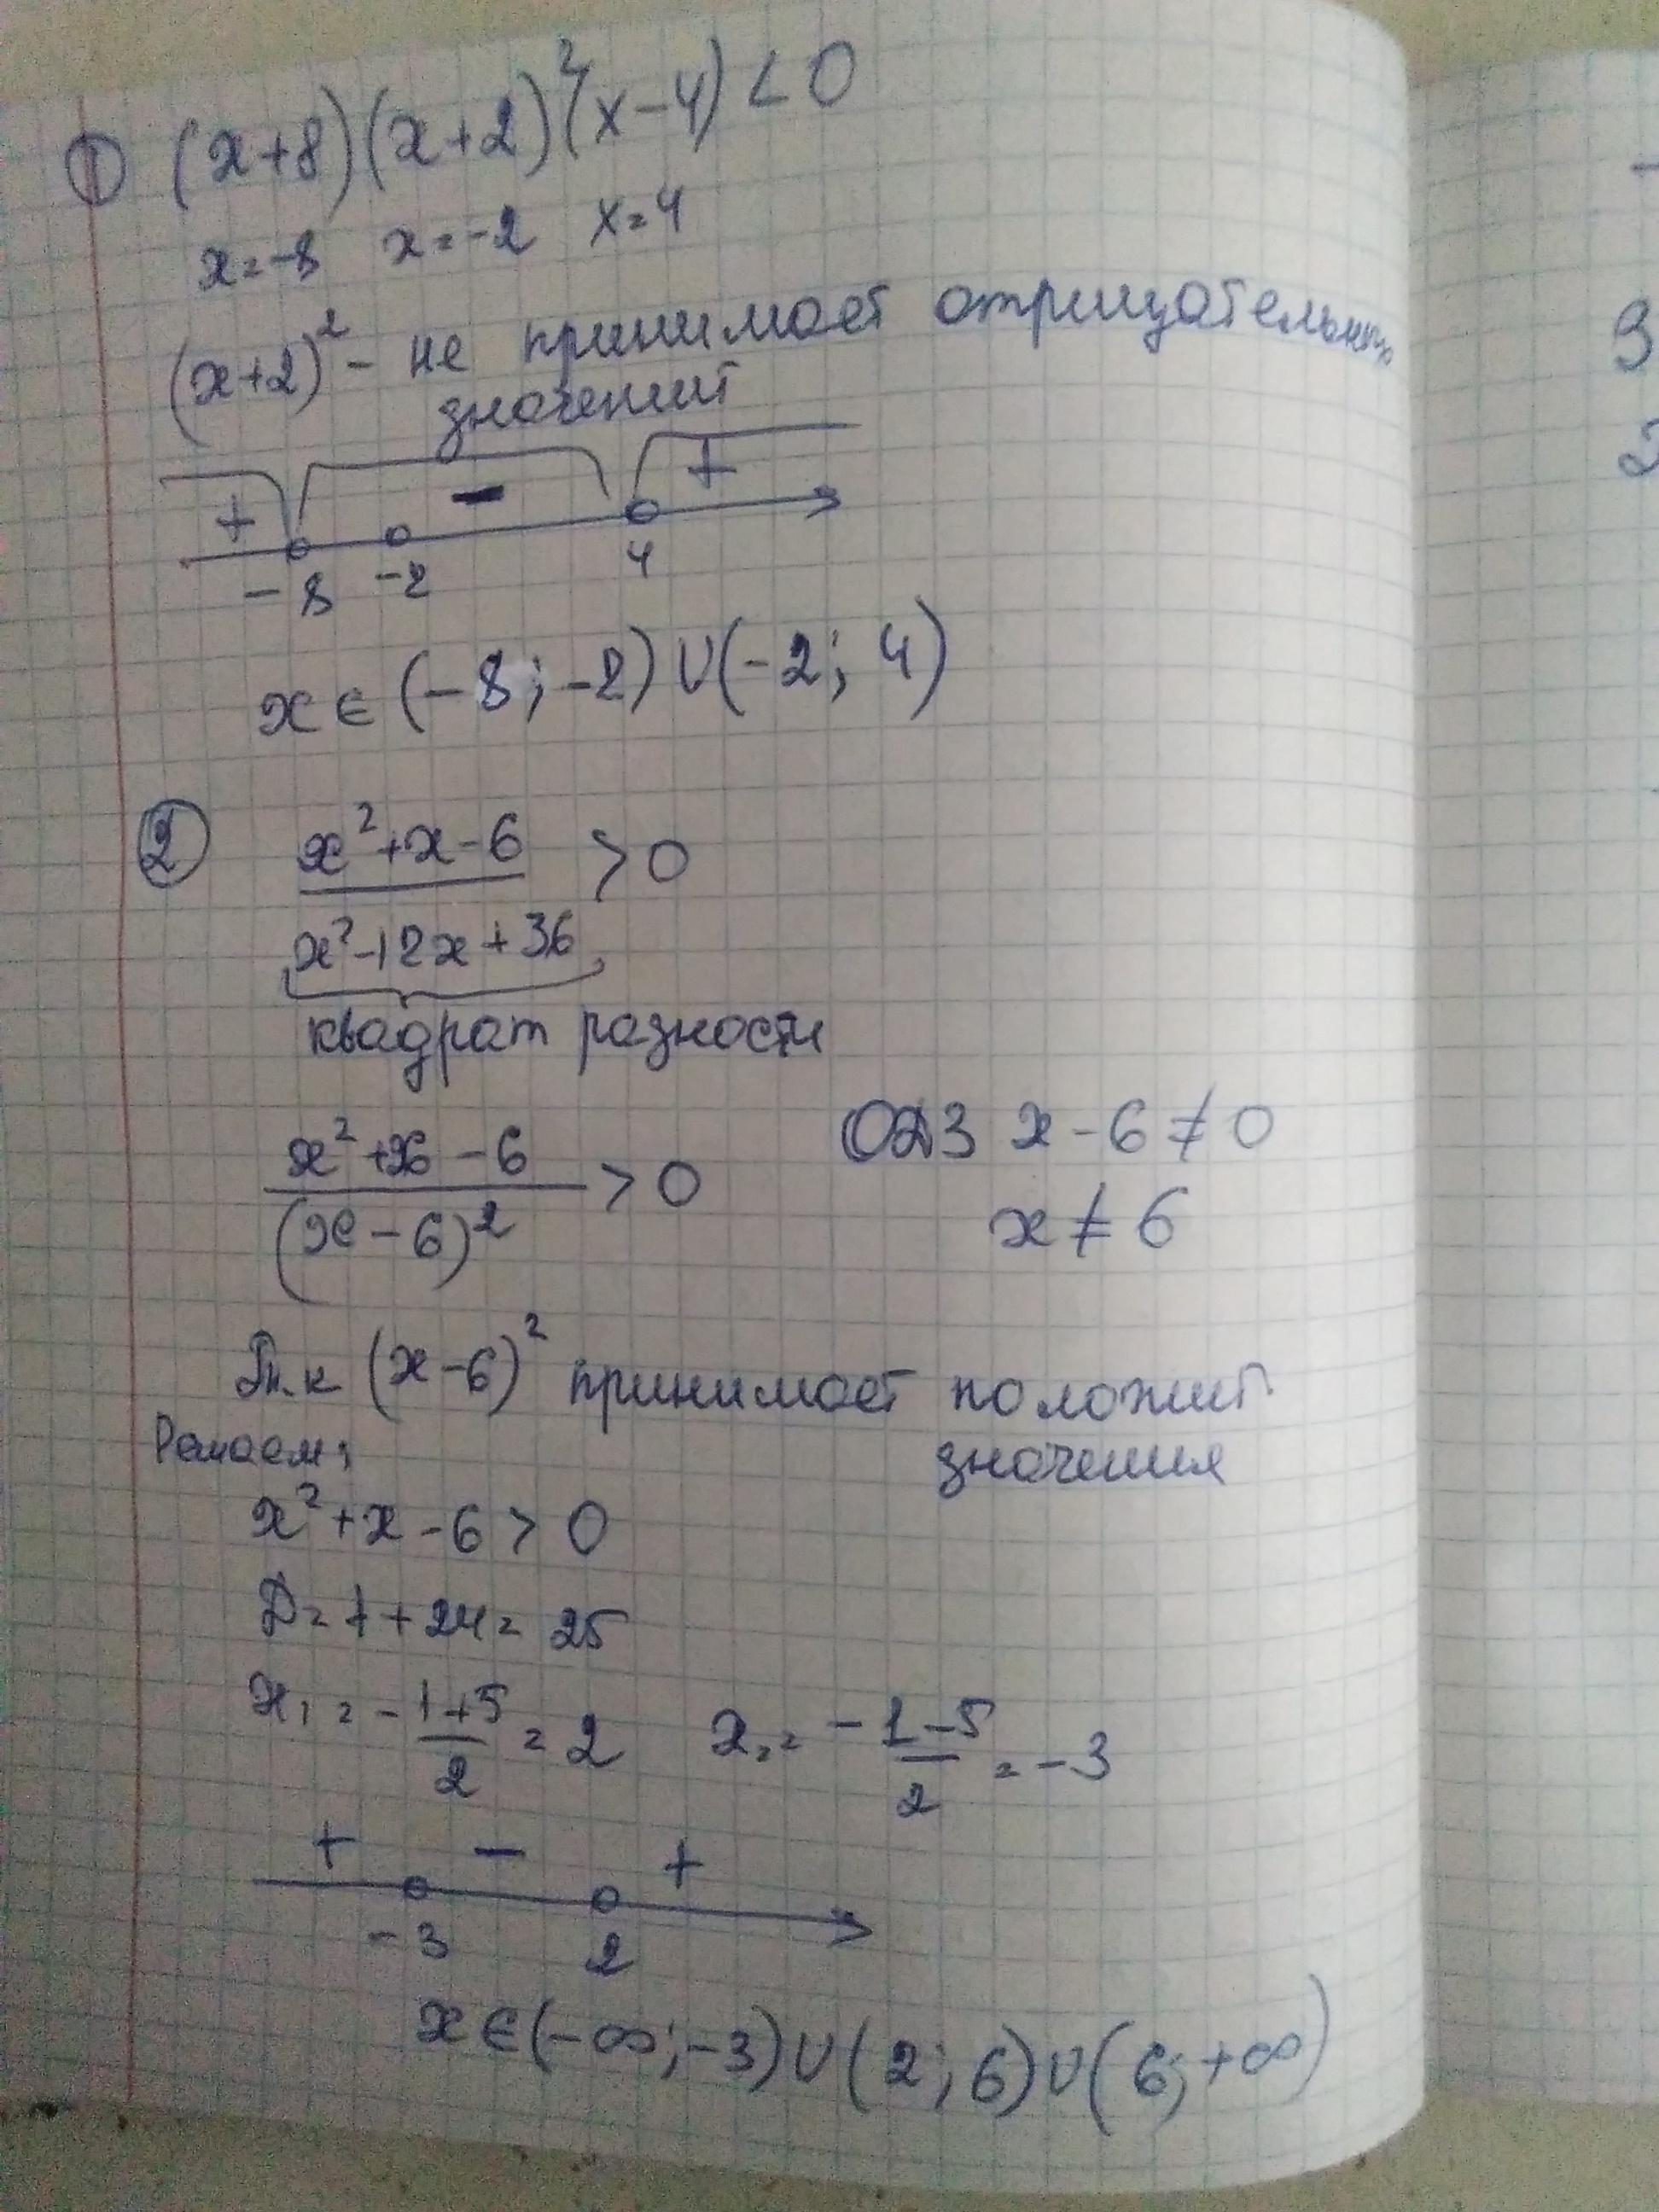 ① (x+8)(x+2)²(x-4) < 0
x=-8 x=-2 x=4
(x+2)² - не принимает отрицательных
значений
+ - +
-8 -2 4
x ∈ (-8; -2) ∪ (-2; 4)
② x²+x-6 / x²-12x+36 > 0
квадрат разности
x²+x-6 / (x-6)² > 0
ОДЗ x-6≠0
x≠6
Т.к (x-6)² принимает положит
значения
Решаем:
x²+x-6 > 0
D=1+24=25
x₁ = -1+5/2 = 2 x₂ = -1-5/2 = -3
+ - +
-3 2
x ∈ (-∞; -3) ∪ (2; 6) ∪ (6; +∞)